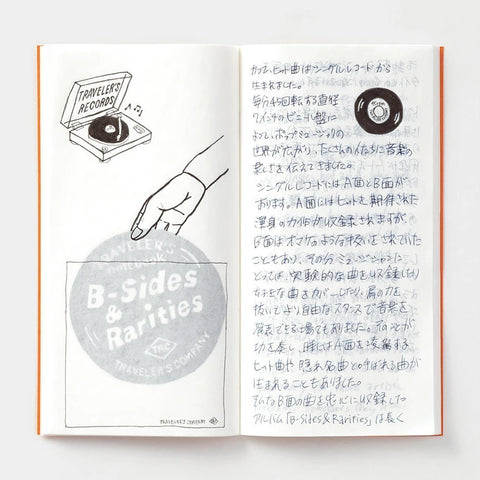 TRAVELER'S
RECORDS
TRAVELER'S
notebook
B-Sides
&
Rarities
TRC
TRAVELER'S COMPANY
TRAVELER'S COMPANY
かつて、ヒット曲はシングルレコードから
生まれました。
毎分45回転する直径
7インチのビニル盤に
よって、ポップミュージックの
世界が広がり、たくさんの人たちに音楽の
良さを伝えてきました。
シングルレコードにはA面とB面が
あります。A面にはヒットを期待された
渾身の力作が収録されますが
B面はオマケのような扱いをされていた
こともあり、その分ミュージシャンに
とっては、実験的な曲を収録したり
好きな曲をカバーしたり、肩の力を
抜いてより自由なスタンスで音楽を
発表できる場でもありました。そのことが
功を奏し、時にはA面を凌駕する
ヒット曲や隠れ名曲と呼ばれる曲が
生まれることもありました。
そんなB面の曲を中心に収録した
アルバム「B-Sides & Rarities」は長く